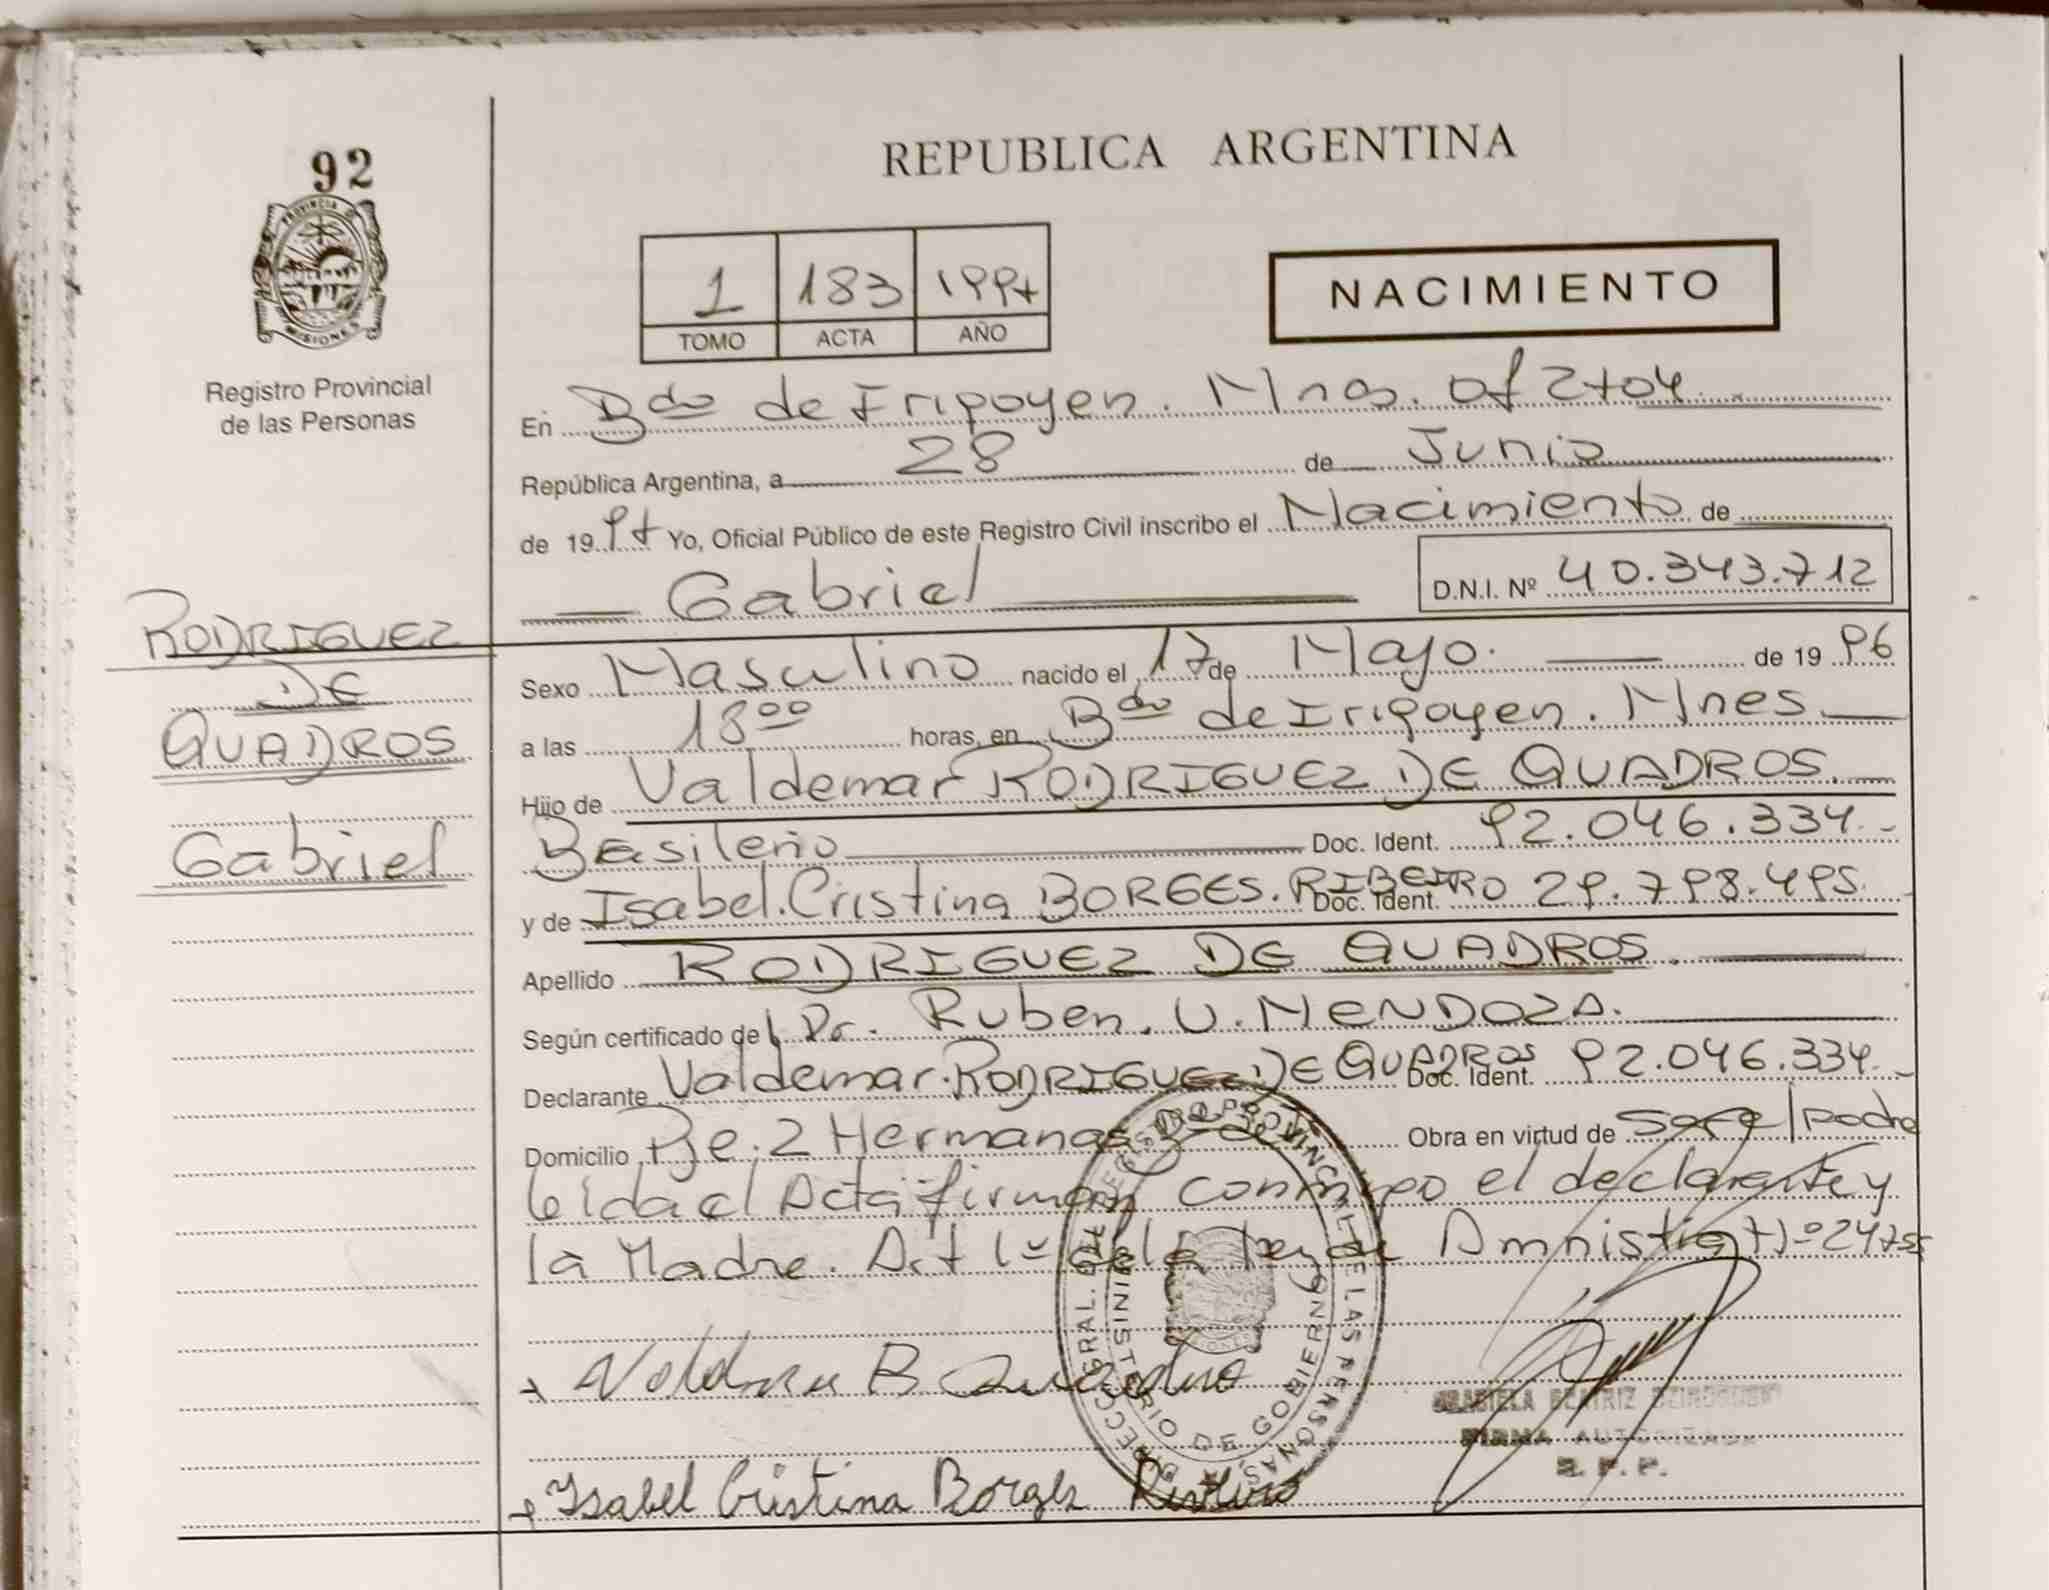 92
PROVINCIA DE
MISIONES
Registro Provincial
de las Personas
RODRIGUEZ
DE
QUADROS
Gabriel
REPUBLICA ARGENTINA
1 183 1997
TOMO ACTA AÑO
NACIMIENTO
En Bdo de Irigoyen. Mnes. Of 2704
República Argentina, a 28 de Junio
de 19 97 Yo, Oficial Público de este Registro Civil inscribo el Nacimiento de
Gabriel D.N.I. Nº 40.343.712
Sexo Masculino nacido el 17 de Mayo. de 19 96
a las 18 00 horas, en Bdo de Irigoyen. Mnes
Hijo de Valdemar RODRIGUEZ DE QUADROS.
Basileño Doc. Ident. 92.046.334.-
y de Isabel. Cristina BORGES. RIBEIRO Doc. Ident. 29.798.495.
Apellido RODRIGUEZ DE QUADROS.
Según certificado del Dr. Ruben. U. MENDOZA.
Declarante Valdemar. RODRIGUEZ DE QUADROS Doc. Ident. 92.046.334.-
Domicilio Pje. 2 Hermanas Obra en virtud de ser el padre
leida el Acta firman conmigo el declarante y
la Madre. Art 1º de la ley de Amnistia Nº 24755
DIRECC. GRAL. DEL REGISTRO PROVINCIAL DE LAS PERSONAS
MINISTERIO DE GOBIERNO
B Quadro
GRACIELA BEATRIZ
FIRMA AUTORIZADA
R. P. P.
Isabel Cristina Borges Ribeiro